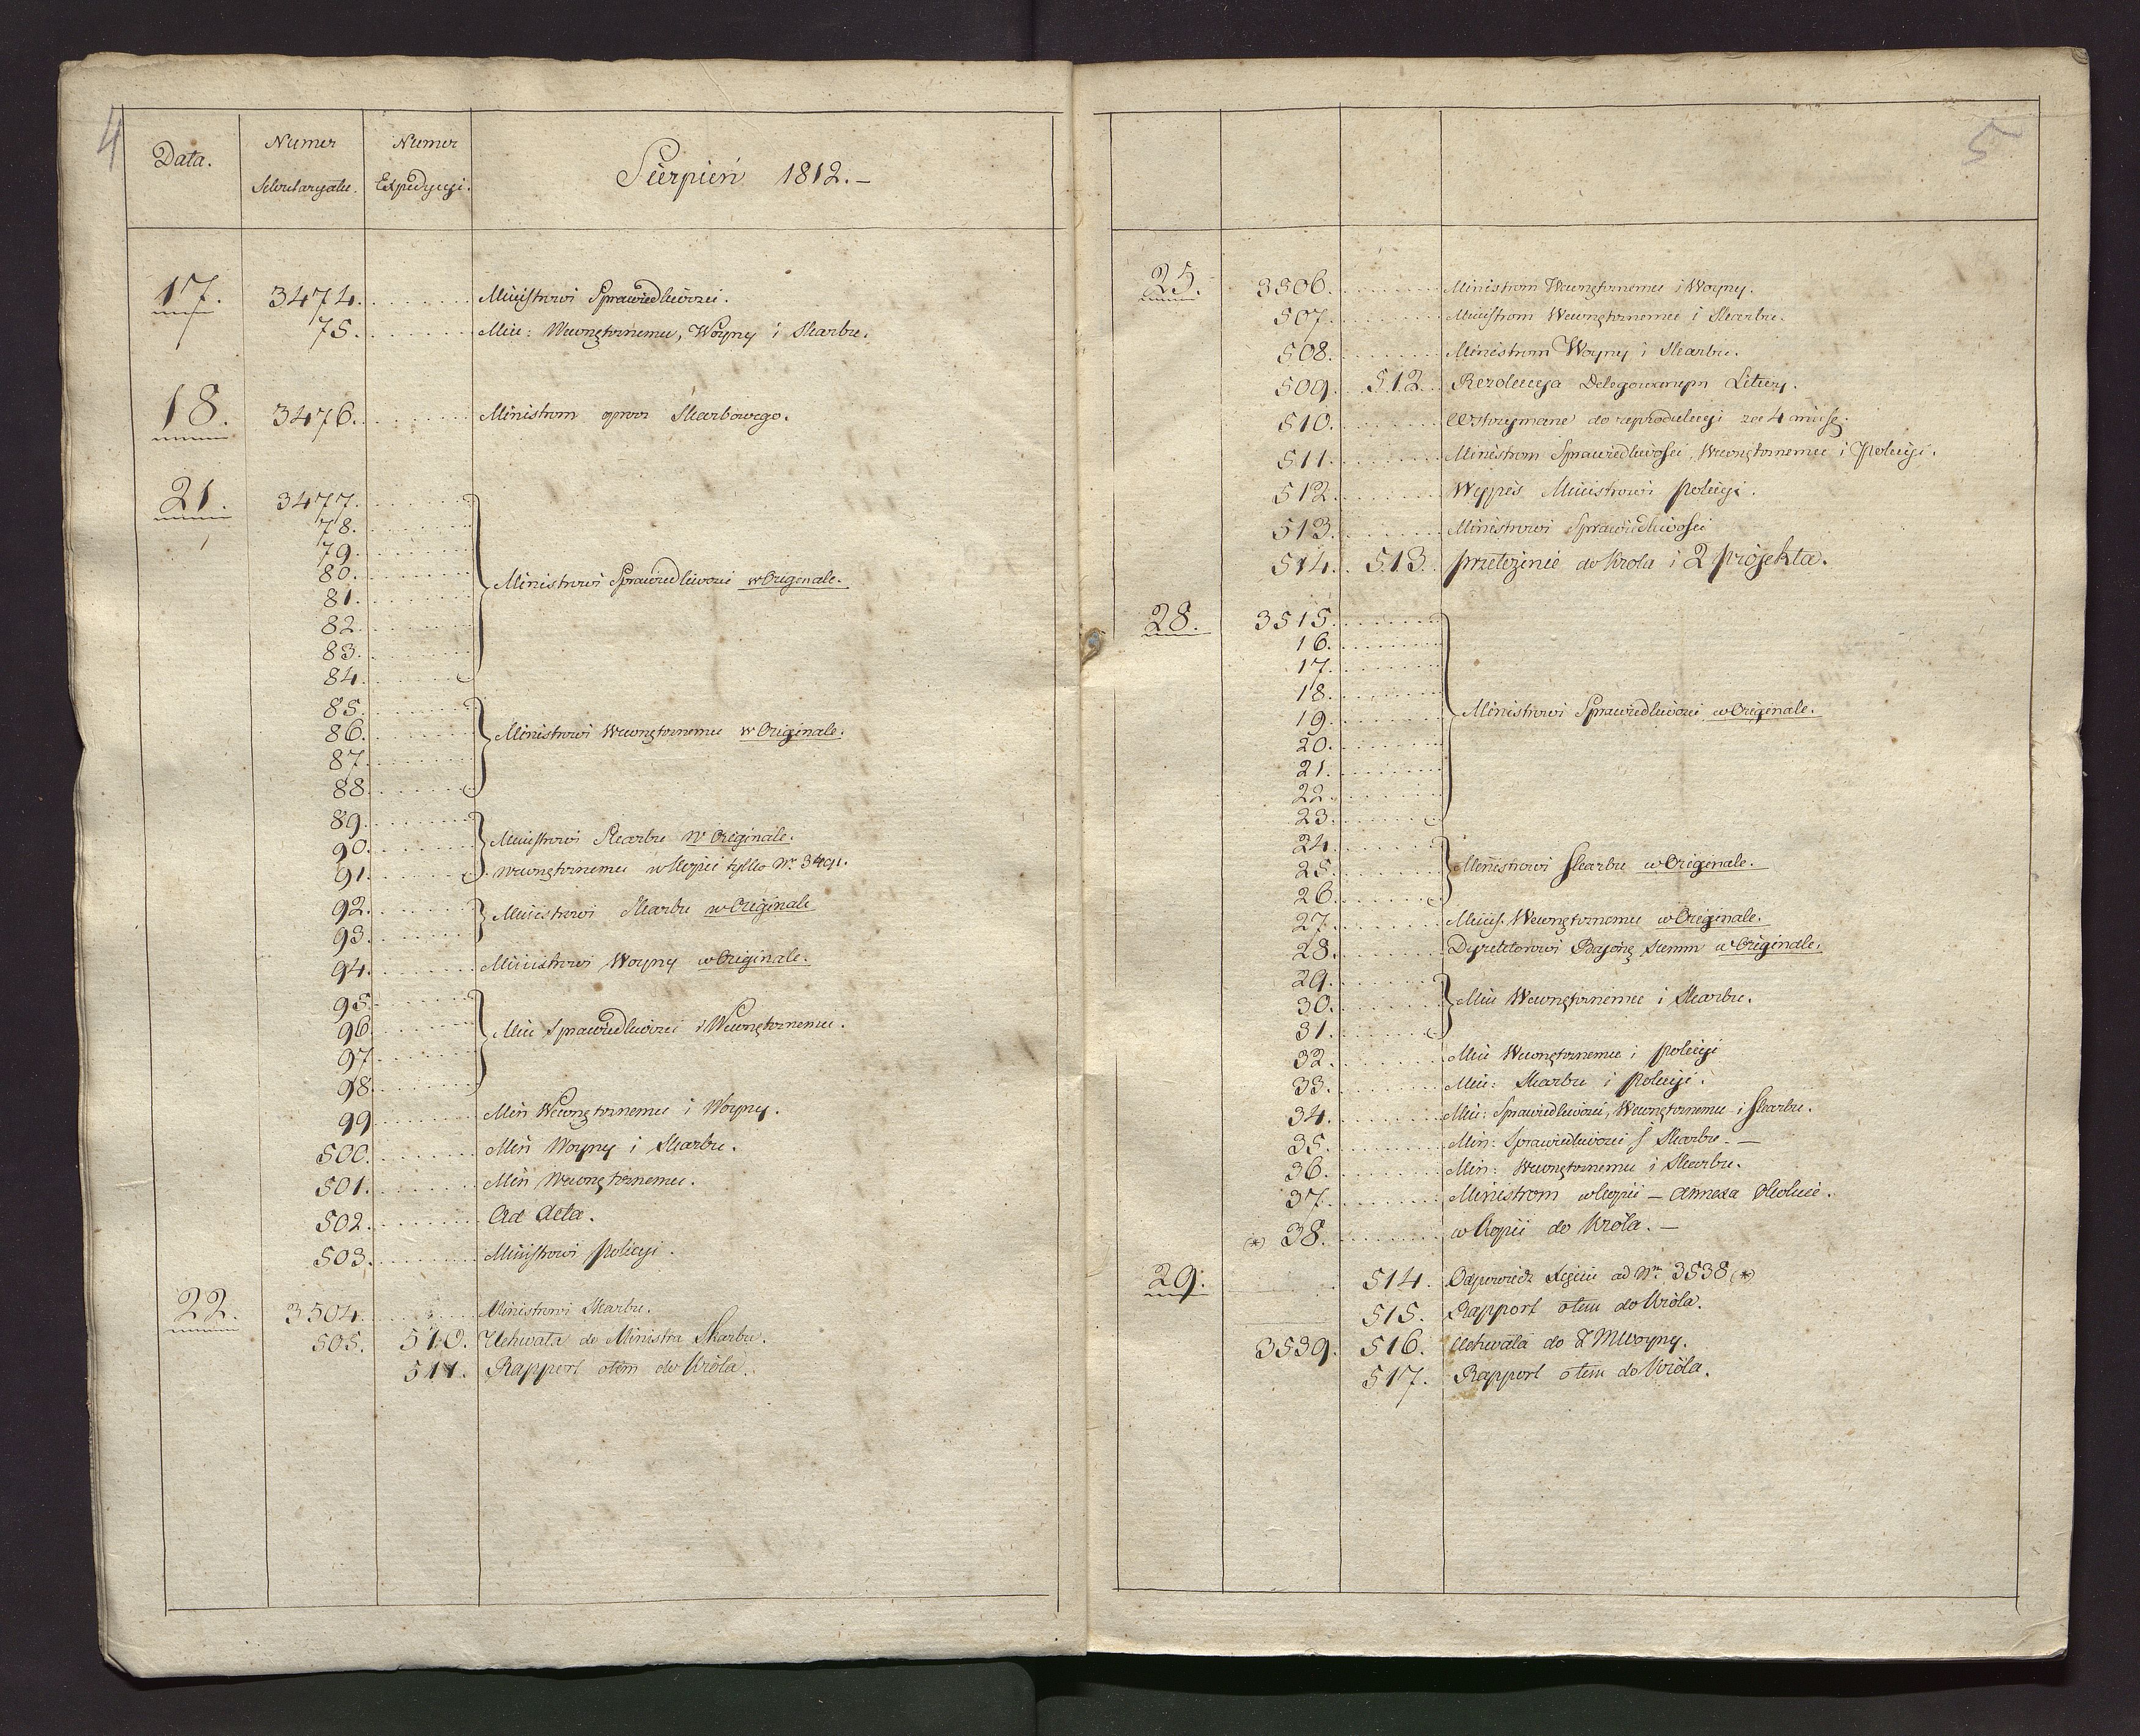 4
Data. Numer Sekretaryatu. Numer Expedycyi. Sierpień 1812.–
17. 3474. Ministrowi Sprawiedliwości.
75. Min: Wewnętrznemu, Woyny i Skarbu.
18. 3476. Ministrom oprocz Skarbowego.
21. 3477.
78.
79.
80. Ministrowi Sprawiedliwości w Originale.
81.
82.
83.
84.
85.
86. Ministrowi Wewnętrznemu w Originale.
87.
88.
89.
90. Ministrowi Skarbu w Originale.
91. Wewnętrznemu w Kopii tylko Nr. 3491.
92. Ministrowi Skarbu w Originale
93.
94. Ministrowi Woyny w Originale.
95.
96. Min Sprawiedliwości i Wewnętrznemu.
97.
98.
99. Min Wewnętrznemu i Woyny.
500. Min Woyny i Skarbu.
501. Min Wewnętrznemu.
502. Ad Acta.
503. Ministrowi Policyi.
22. 3504. Ministrowi Skarbu.
505. 510. Uchwała do Ministra Skarbu.
511. Rapport o tem do Króla.
5
25. 3506. Ministrom Wewnętrznemu i Woyny.
507. Ministrom Wewnętrznemu i Skarbu.
508. Ministrom Woyny i Skarbu.
509. 512. Rezolucya Delegowanym Litwy.
510. Wstrzymane do reprodukcyi za 4 mies:
511. Ministrom Sprawiedliwości, Wewnętrznemu i Policyi.
512. Wypis Ministrowi Policyi.
513. Ministrowi Sprawiedliwości
514. 513. Przełożenie do Krola i 2 projekta.
28. 3515.
16.
17.
18.
19. Ministrowi Sprawiedliwości w Originale.
20.
21.
22.
23.
24.
25. Ministrowi Skarbu w Originale.
26.
27. Minis. Wewnętrznemu w Originale.
28. Dyrektorowi w Originale.
29.
30. Min Wewnętrznemu i Skarbu.
31.
32. Min Wewnętrznemu i Policyi
33. Min: Skarbu i Policyi.
34. Min: Sprawiedliwości, Wewnętrznemu i Skarbu.
35. Min: Sprawiedliwości i Skarbu. –
36. Min: Wewnętrznemu i Skarbu.
37. Ministrom w Kopii – annexa
(*) 38. w Kopii do Króla. –
29. 514. Odpowiedź ad Nr. 3538 (*)
515. Rapport o tem do Króla.
3539. 516. Uchwała do Woyny.
517. Rapport o tem do Króla.